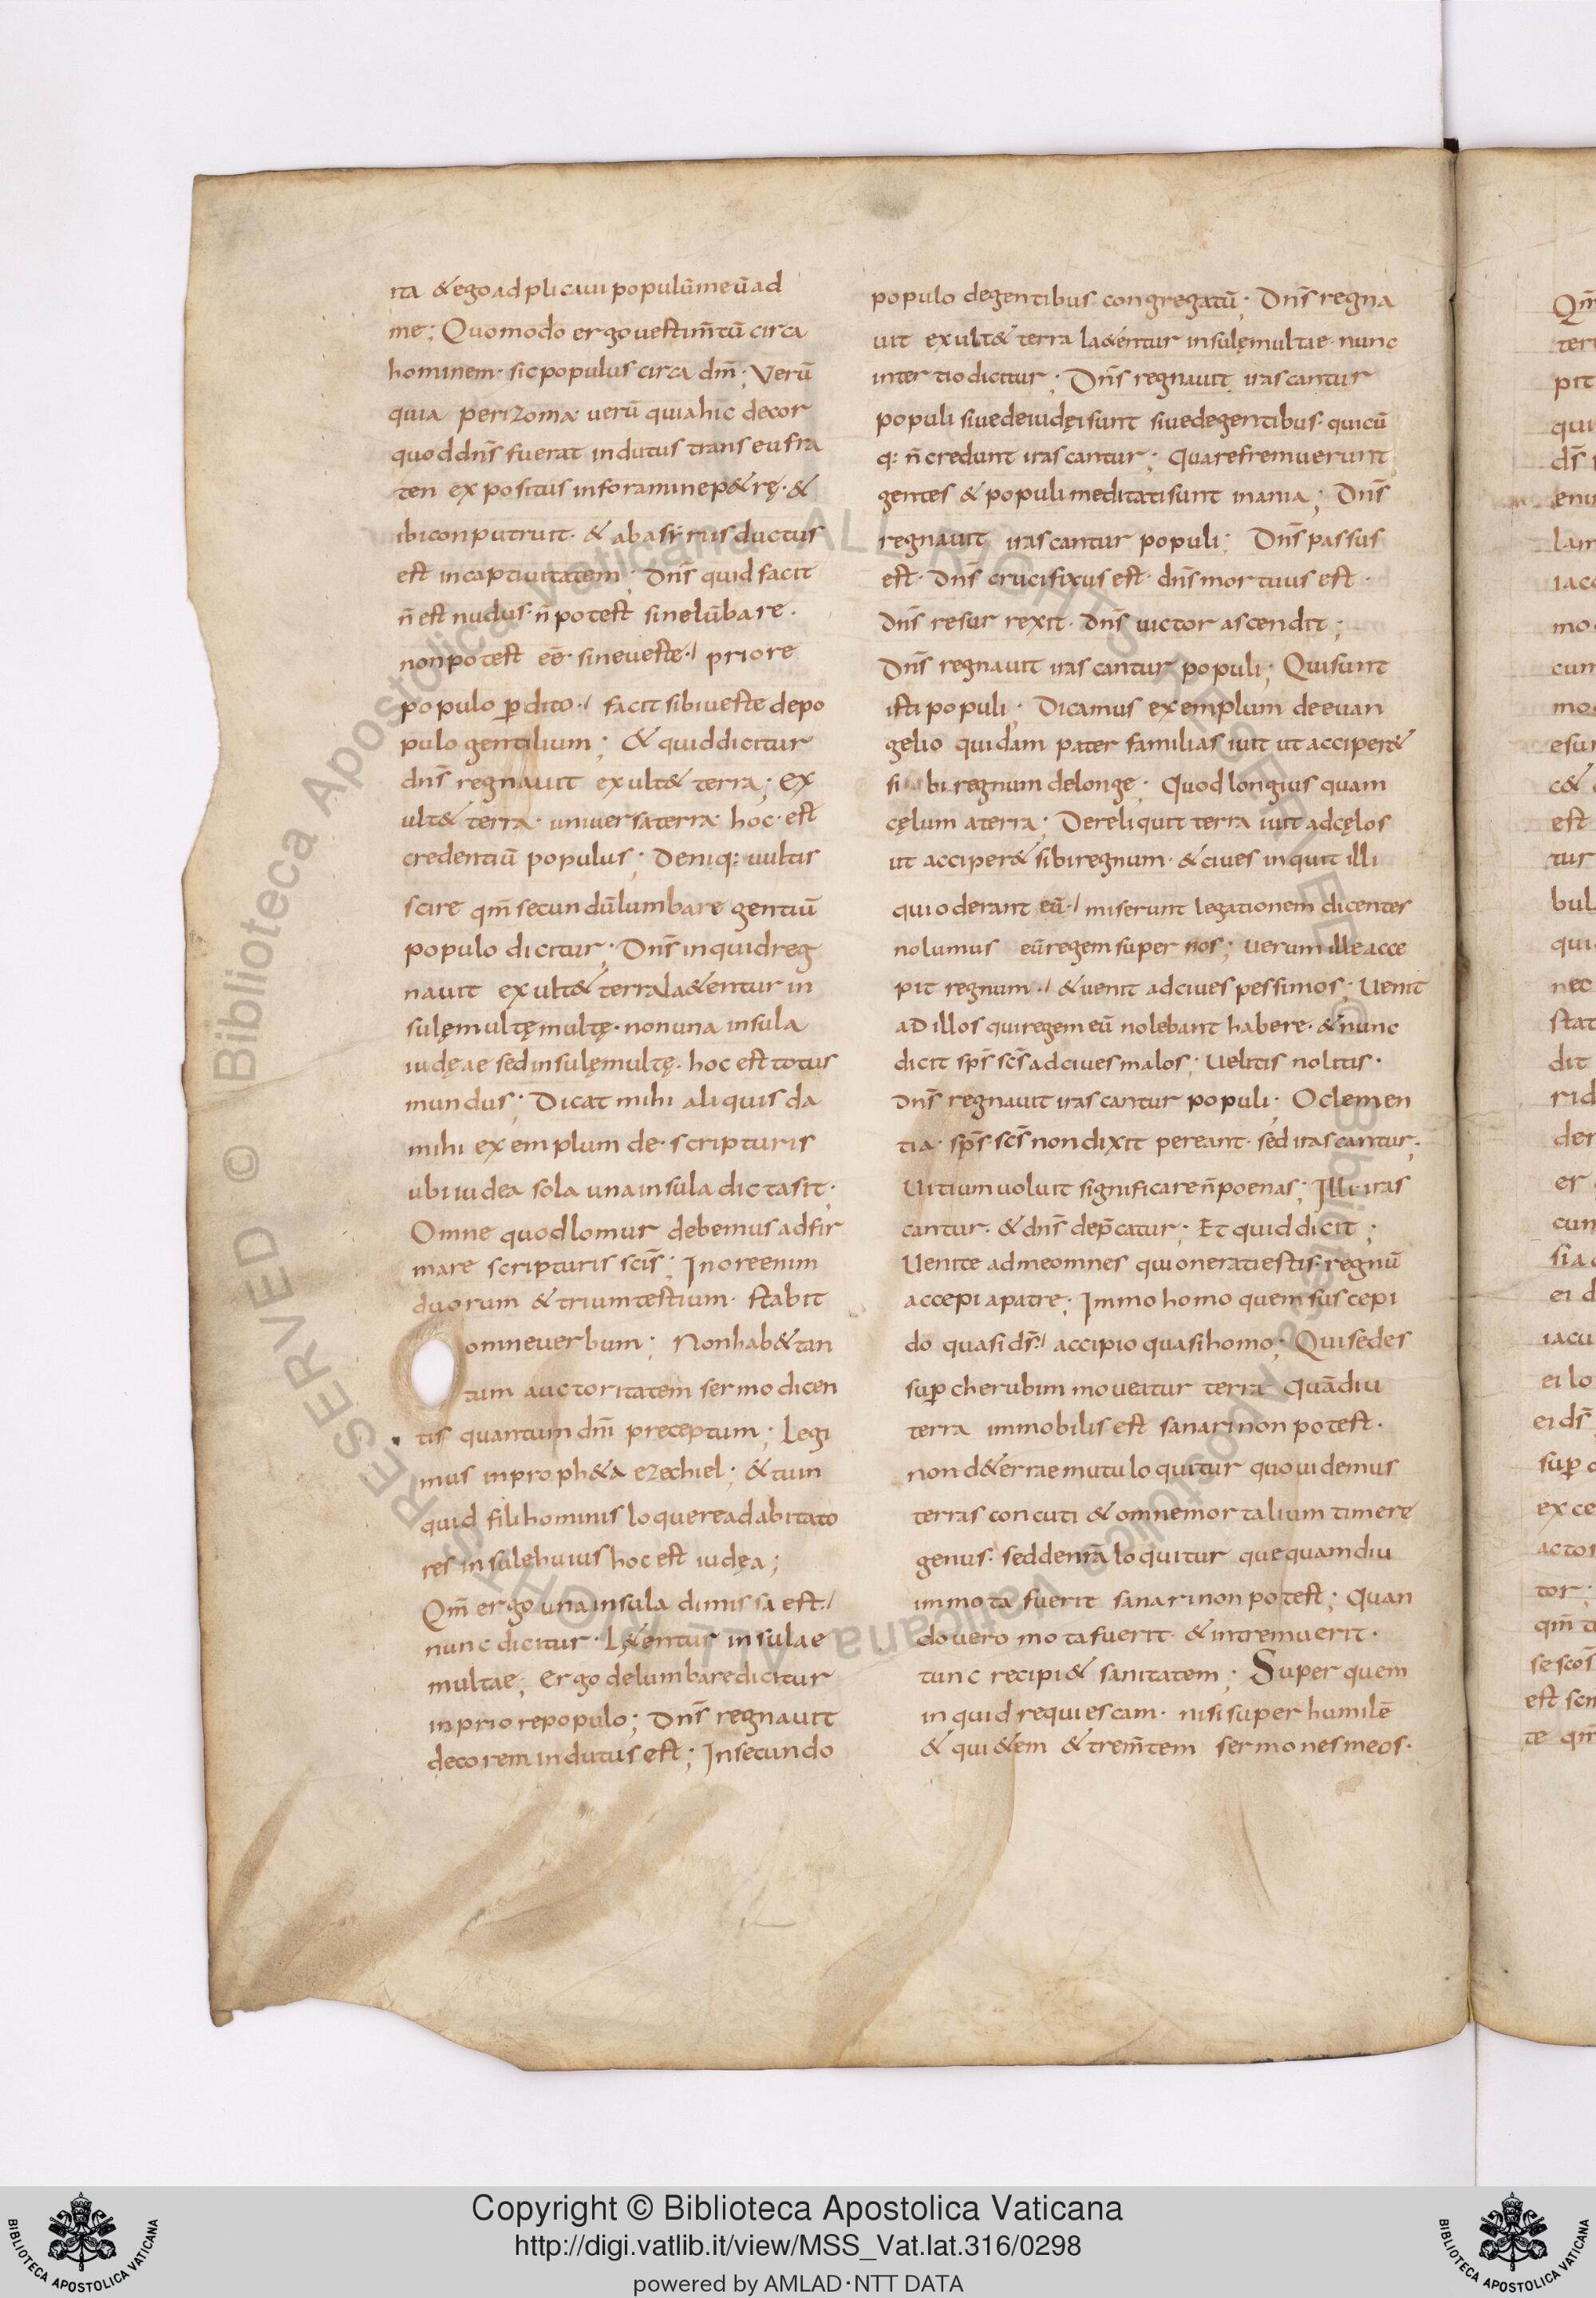 ita & ego adplicuui populū meū ad
me; Quomodo ergo uestim̄tū circa
hominem· sic populus circa dm̄; Verū
quia perizoma uerū quia hic decor
quod dn̄s fuerat indutus trans eufra
ten expositus in foramine p&rę· &
ibi conputruit· & ab assyriis ductus
est in captiuitatem; Dn̄s quid facit
n̄ est nudus· n̄ potest sine lūbare·
non potest eē· sine ueste·/ priore
populo p̱dito·/ facit sibi ueste de po
pulo gentilium; & quid dicitur
dn̄s regnauit exult& terra; Ex
ult& terra· uniuersa terra· hoc· est
credentiū populus; Deniq: uultis
scire qm̄ secundū lumbare gentiū
populo dicitur; Dn̄s inquid reg
nauit exult& terra la&entur in
sulę multę multę· non una insula
iudęae sed insulę multę· hoc est totus
mundus; Dicat mihi aliquis da
mihi exemplum de· scripturis
ubi iudea sola una insula dicta sit;
Omne quod lomur debemus adfir
mare scripturis scīs; In ore enim
duorum & trium testium· stabit
omne uerbum; Non hab& tan
tum auctoritatem sermo dicen
tis quantum dn̄i preceptum; Legi
mus in proph&a ezechiel; & tum
quid fili hominis loquere ad abitato
res insulę huius hoc est iudęa;
Qm̄ ergo una insula dimissa est·/
nunc dicitur· L&entur insulae
multae; Ergo de lumbare dicitur
in priore populo; Dn̄s regnauit
decorem indutus est; In secundo
populo de gentibus congregatū; Dn̄s regna
uit exult& terra la&entur insulę multae· nunc
in tertio dicitur; Dn̄s regnauit irascantur
populi siue de iudęi sunt siue de gentibus· quicū
q: n̄ credunt irascantur; Quare fremuerunt
gentes & populi meditati sunt inania; Dn̄s
regnauit irascantur populi; Dn̄s passus
est· Dn̄s crucifixus est· dn̄s mortuus est·
Dn̄s resurrexit· Dn̄s uictor ascendit;
Dn̄s regnauit irascantur populi; Qui sunt
isti populi; Dicamus exemplum de euan
gelio quidam pater familias iuit ut acciper&
sibi regnum de longe; Quod longius quam
cęlum a terra; Dereliquit terra iuit ad cęlos
ut acciper& sibi regnum· & ciues inquit illi
qui oderant eū·/ miserunt legationem dicentes
nolumus eū regem super nos; Verum ille acce
pit regnum·/ & uenit ad ciues pessimos; Venit
ad illos qui regem eū nolebant habere· & nunc
dicit sp̄s sc̄s ad ciues malos; Uelitis nolitis·
Dn̄s regnauit irascantur populi; O clemen
tia· sp̄s sc̄s non dixit pereant· sed irascantur;
Vitium uoluit significare n̄ poenas; Illi iras
cantur· & dn̄s dep̄catur; Et quid dicit;
Venite ad me omnes qui onerati estis· regnū
accepi a patre; Immo homo quem suscepi
do quasi ds̄·/ accipio quasi homo; Qui sedes
sup̱ cherubim moueatur terra Quādiu
terra immobilis est sanari non potest·
non de terrae mutu loquitur quo uidemus
terras concuti & omne mortalium timere
genus· sed de n̄rā loquitur que quamdiu
immota fuerit sanari non potest; Quan
do uero mota fuerit· & intremuerit·
tunc recipi& sanitatem; Super quem
inquid requiescam· nisi super humilē
& qui&em & trem̄tem sermones meos·
Copyright © Biblioteca Apostolica Vaticana
http://digi.vatlib.it/view/MSS_Vat.lat.316/0298
powered by AMLAD·NTT DATA
BIBLIOTECA APOSTOLICA VATICANA
BIBLIOTECA APOSTOLICA VATICANA